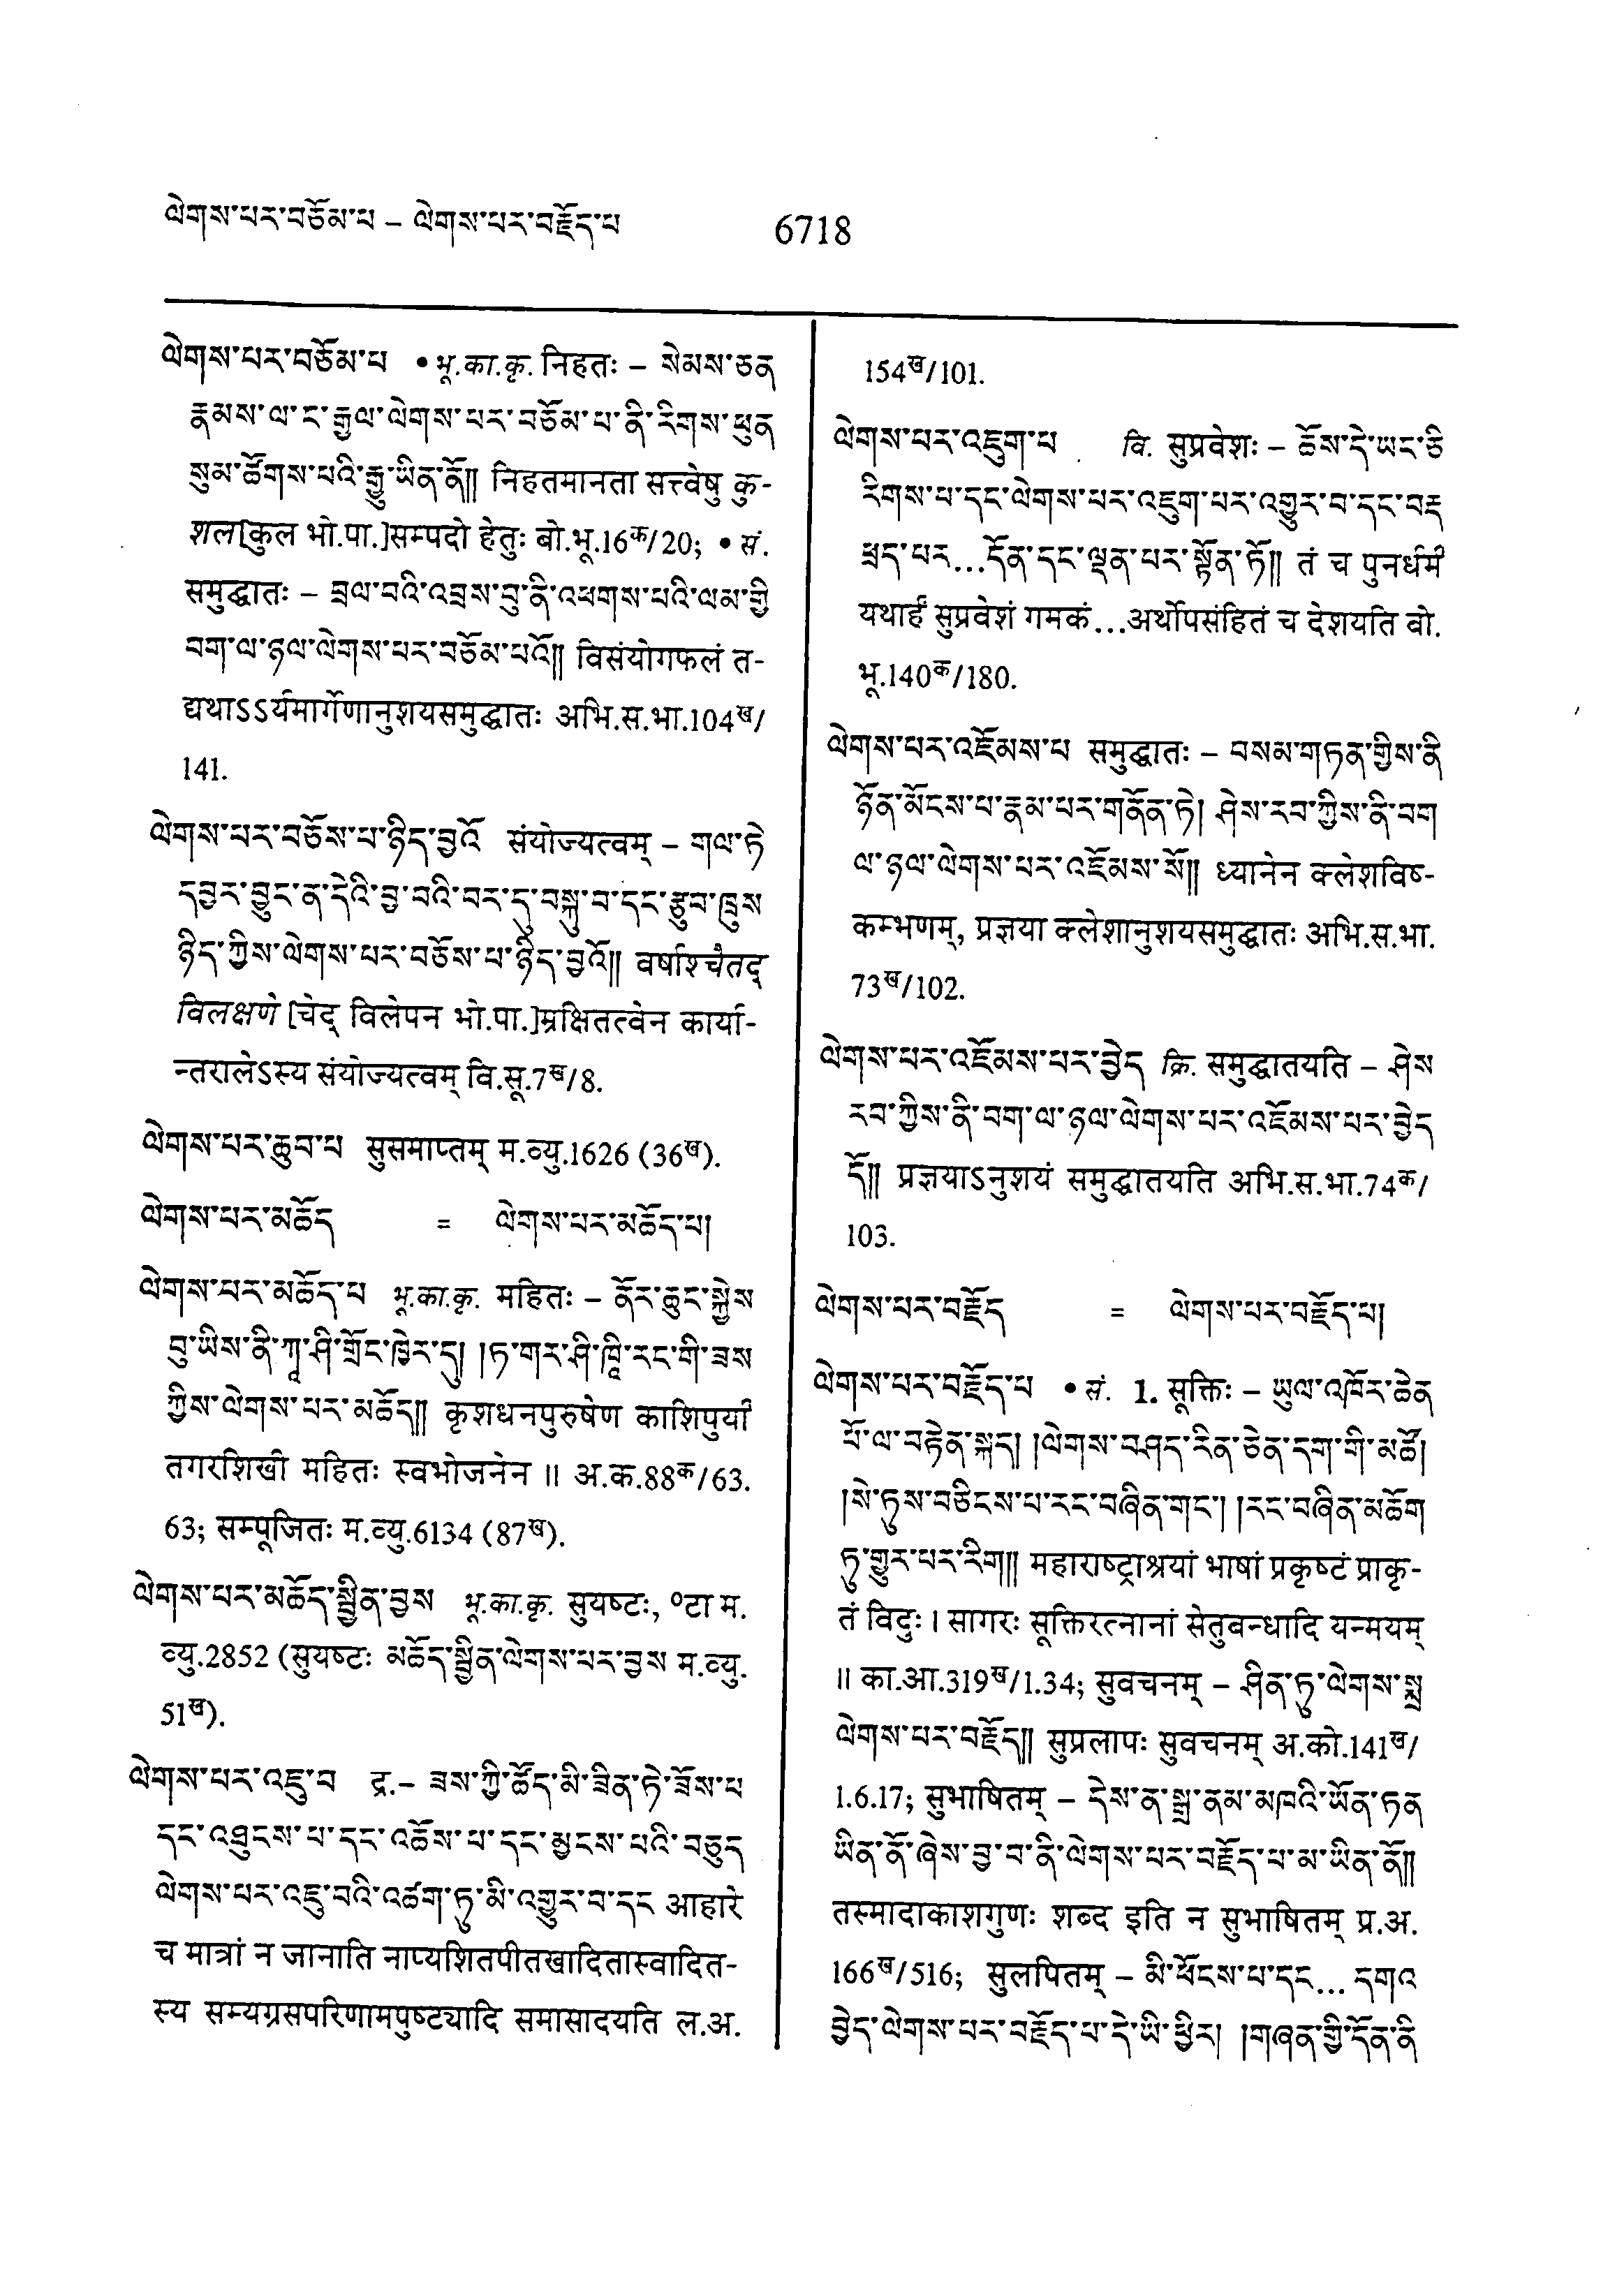 ལེགས་པར་བཅོམ་པ – ལེགས་པར་བརྗོད་པ
6718
ལེགས་པར་བཅོམ་པ • भू.का.कृ. निहतः – སེམས་ཅན
རྣམས་ལ་ང་རྒྱལ་ལེགས་པར་བཅོམ་པ་ནི་རིགས་ཕུན
སུམ་ཚོགས་པའི་རྒྱུ་ཡིན་ནོ།། निहतमानता सत्त्वेषु कु-
शल[कुल भो.पा.]सम्पदो हेतुः बो.भू.16क/20; • सं.
समुद्धातः – བྲལ་བའི་འབྲས་བུ་ནི་འཕགས་པའི་ལམ་གྱི
བག་ལ་ཉལ་ལེགས་པར་བཅོམ་པའོ།། विसंयोगफलं त-
द्यथाऽऽर्यमार्गेणानुशयसमुद्धातः अभि.स.भा.104ख/
141.
ལེགས་པར་བཅོས་པ་ཉིད་བྱའོ संयोज्यत्वम् – གལ་ཏེ
དབྱར་བྱུང་ན་དེའི་བྱ་བའི་བར་དུ་བསྐུ་བ་དང་རྩུབ་ཁྲུས
ཉིད་ཀྱིས་ལེགས་པར་བཅོས་པ་ཉིད་བྱའོ།། वर्षाश्चैतद्
विलक्षणे [चेद् विलेपन भो.पा.]म्रक्षितत्वेन कार्या-
न्तरालेऽस्य संयोज्यत्वम् वि.सू.7ख/8.
ལེགས་པར་ཆུབ་པ सुसमाप्तम् म.व्यु.1626 (36ख).
ལེགས་པར་མཆོད = ལེགས་པར་མཆོད་པ།
ལེགས་པར་མཆོད་པ भू.का.कृ. महितः – ནོར་ཆུང་སྐྱེས
བུ་ཡིས་ནི་ཀཱ་ཤི་གྲོང་ཁྱེར་དུ། །ཏ་གར་ཤི་ཁཱི་རང་གི་ཟས
ཀྱིས་ལེགས་པར་མཆོད།། कृशधनपुरुषेण काशिपुर्यां
तगरशिखी महितः स्वभोजनेन ॥ अ.क.88क/63.
63; सम्पूजितः म.व्यु.6134 (87ख).
ལེགས་པར་མཆོད་སྦྱིན་བྱས भू.का.कृ. सुयष्टः, ०टा म.
व्यु.2852 (सुयष्टः མཆོད་སྦྱིན་ལེགས་པར་བྱས म.व्यु.
51ख).
ལེགས་པར་འཇུ་བ द्र.– ཟས་ཀྱི་ཚོད་མི་ཟིན་ཏེ་ཟོས་པ
དང་འཐུངས་པ་དང་འཆོས་པ་དང་མྱངས་པའི་བཅུད
ལེགས་པར་འཇུ་བའི་འཚག་ཏུ་མི་འགྱུར་བ་དང आहारे
च मात्रां न जानाति नाप्यशितपीतखादितास्वादित-
स्य सम्यग्रसपरिणामपुष्ट्यादि समासादयति ल.अ.
154ख/101.
ལེགས་པར་འཇུག་པ वि. सुप्रवेशः – ཆོས་དེ་ཡང་ཅི
རིགས་པ་དང་ལེགས་པར་འཇུག་པར་འགྱུར་བ་དང་བརྡ
ཕྲད་པར...དོན་དང་ལྡན་པར་སྟོན་ཏོ།། तं च पुनर्धर्मं
यथार्हं सुप्रवेशं गमकं...अर्थोपसंहितं च देशयति बो.
भू.140क/180.
ལེགས་པར་འཇོམས་པ समुद्धातः – བསམ་གཏན་གྱིས་ནི
ཉོན་མོངས་པ་རྣམ་པར་གནོན་ཏེ། ཤེས་རབ་ཀྱིས་ནི་བག
ལ་ཉལ་ལེགས་པར་འཇོམས་སོ།། ध्यानेन क्लेशविष्-
कम्भणम्, प्रज्ञया क्लेशानुशयसमुद्धातः अभि.स.भा.
73ख/102.
ལེགས་པར་འཇོམས་པར་བྱེད क्रि. समुद्धातयति – ཤེས
རབ་ཀྱིས་ནི་བག་ལ་ཉལ་ལེགས་པར་འཇོམས་པར་བྱེད
དོ།། प्रज्ञयाऽनुशयं समुद्धातयति अभि.स.भा.74क/
103.
ལེགས་པར་བརྗོད = ལེགས་པར་བརྗོད་པ།
ལེགས་པར་བརྗོད་པ • सं. 1. सूक्तिः – ཡུལ་འཁོར་ཆེན
པོ་ལ་བརྟེན་སྐད། །ལེགས་བཤད་རིན་ཅེན་དག་གི་མཚོ།
།སེ་ཏུས་བཅིངས་པ་རང་བཞིན་གང་། །རང་བཞིན་མཆོག
ཏུ་གྱུར་པར་རིག།། महाराष्ट्राश्रयां भाषां प्रकृष्टं प्राकृ-
तं विदुः। सागरः सूक्तिरत्नानां सेतुबन्धादि यन्मयम्
॥ का.आ.319ख/1.34; सुवचनम् – ཤིན་ཏུ་ལེགས་སྨྲ
ལེགས་པར་བརྗོད།། सुप्रलापः सुवचनम् अ.को.141ख/
1.6.17; सुभाषितम् – དེས་ན་སྒྲ་ནམ་མཁའི་ཡོན་ཏན
ཡིན་ནོ་ཞེས་བྱ་བ་ནི་ལེགས་པར་བརྗོད་པ་མ་ཡིན་ནོ།།
तस्मादाकाशगुणः शब्द इति न सुभाषितम् प्र.अ.
166ख/516; सुलपितम् – མི་ཕོངས་པ་དང... དགའ
བྱེད་ལེགས་པར་བརྗོད་པ་དེ་ཡི་ཕྱིར། །གཞན་གྱི་དོན་ནི